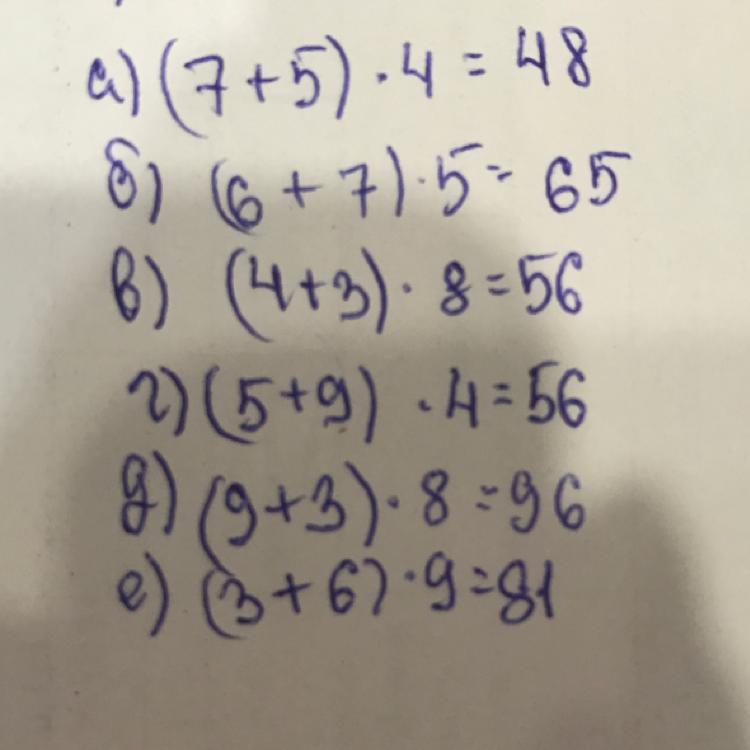 а) (7+5) · 4 = 48
б) (6 + 7) · 5 = 65
в) (4+3) · 8 = 56
г) (5+9) · 4 = 56
д) (9+3) · 8 = 96
е) (3+6) · 9 = 81